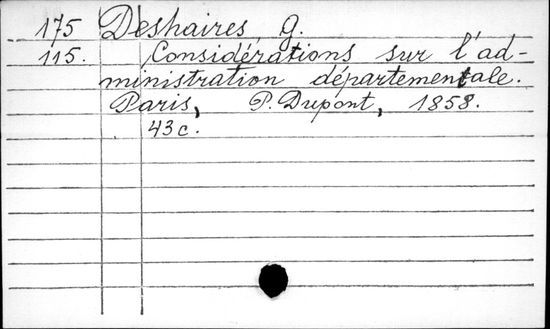 175 Deshaires G.
115. Considérations sur l'ad-
ministration départementale.
Paris, P. Dupont, 1858.
43c.